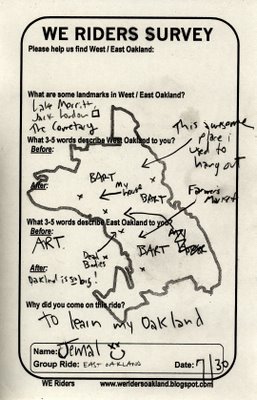 WE RIDERS SURVEY
Please help us find West / East Oakland:
What are some landmarks in West / East Oakland?
Lake Merritt,
Jack London □
The Cemetary
This awesome
place i
used to
hang out
What 3-5 words describe West Oakland to you?
Before:
BART
After:
my
house
BART
Farmers
Market
What 3-5 words describe East Oakland to you?
Before:
ART.
Dead
Bodies
BART
After:
Oakland is so big!
Why did you come on this ride?
to learn my Oakland
Name: Jemal
Group Ride: EAST OAKLAND
Date: 7/30
WE Riders
www.weridersoakland.blogspot.com